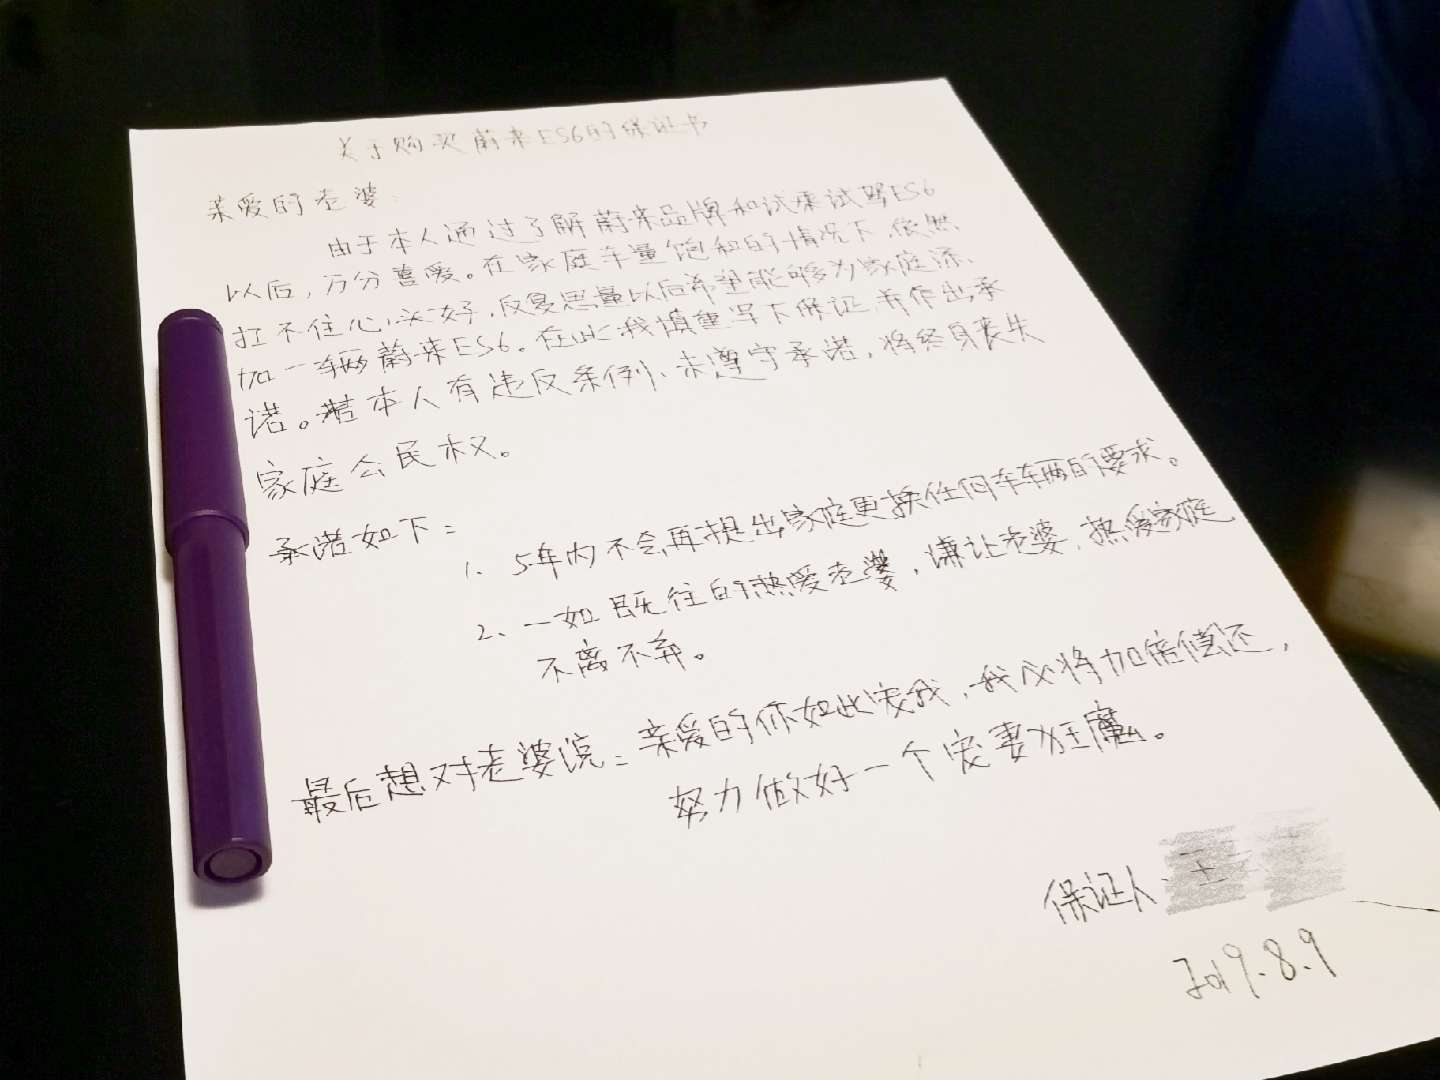 关于购买蔚来ES6的保证书
亲爱的老婆：
由于本人通过了解蔚来品牌和试乘试驾ES6
以后，万分喜爱。在家庭车量饱和的情况下，依然
扛不住心头好，反复思量以后希望能够为家庭添
加一辆蔚来ES6。在此我慎重写下保证，并作出承
诺。若本人有违反条例、未遵守承诺，将终身丧失
家庭公民权。
承诺如下：
1、5年内不会再提出家庭更换任何车车辆的要求。
2、一如既往的热爱老婆，谦让老婆，热爱家庭
不离不弃。
最后想对老婆说：亲爱的你如此宠我，我必将加倍偿还，
努力做好一个宠妻狂魔。
保证人：王
2019.8.9